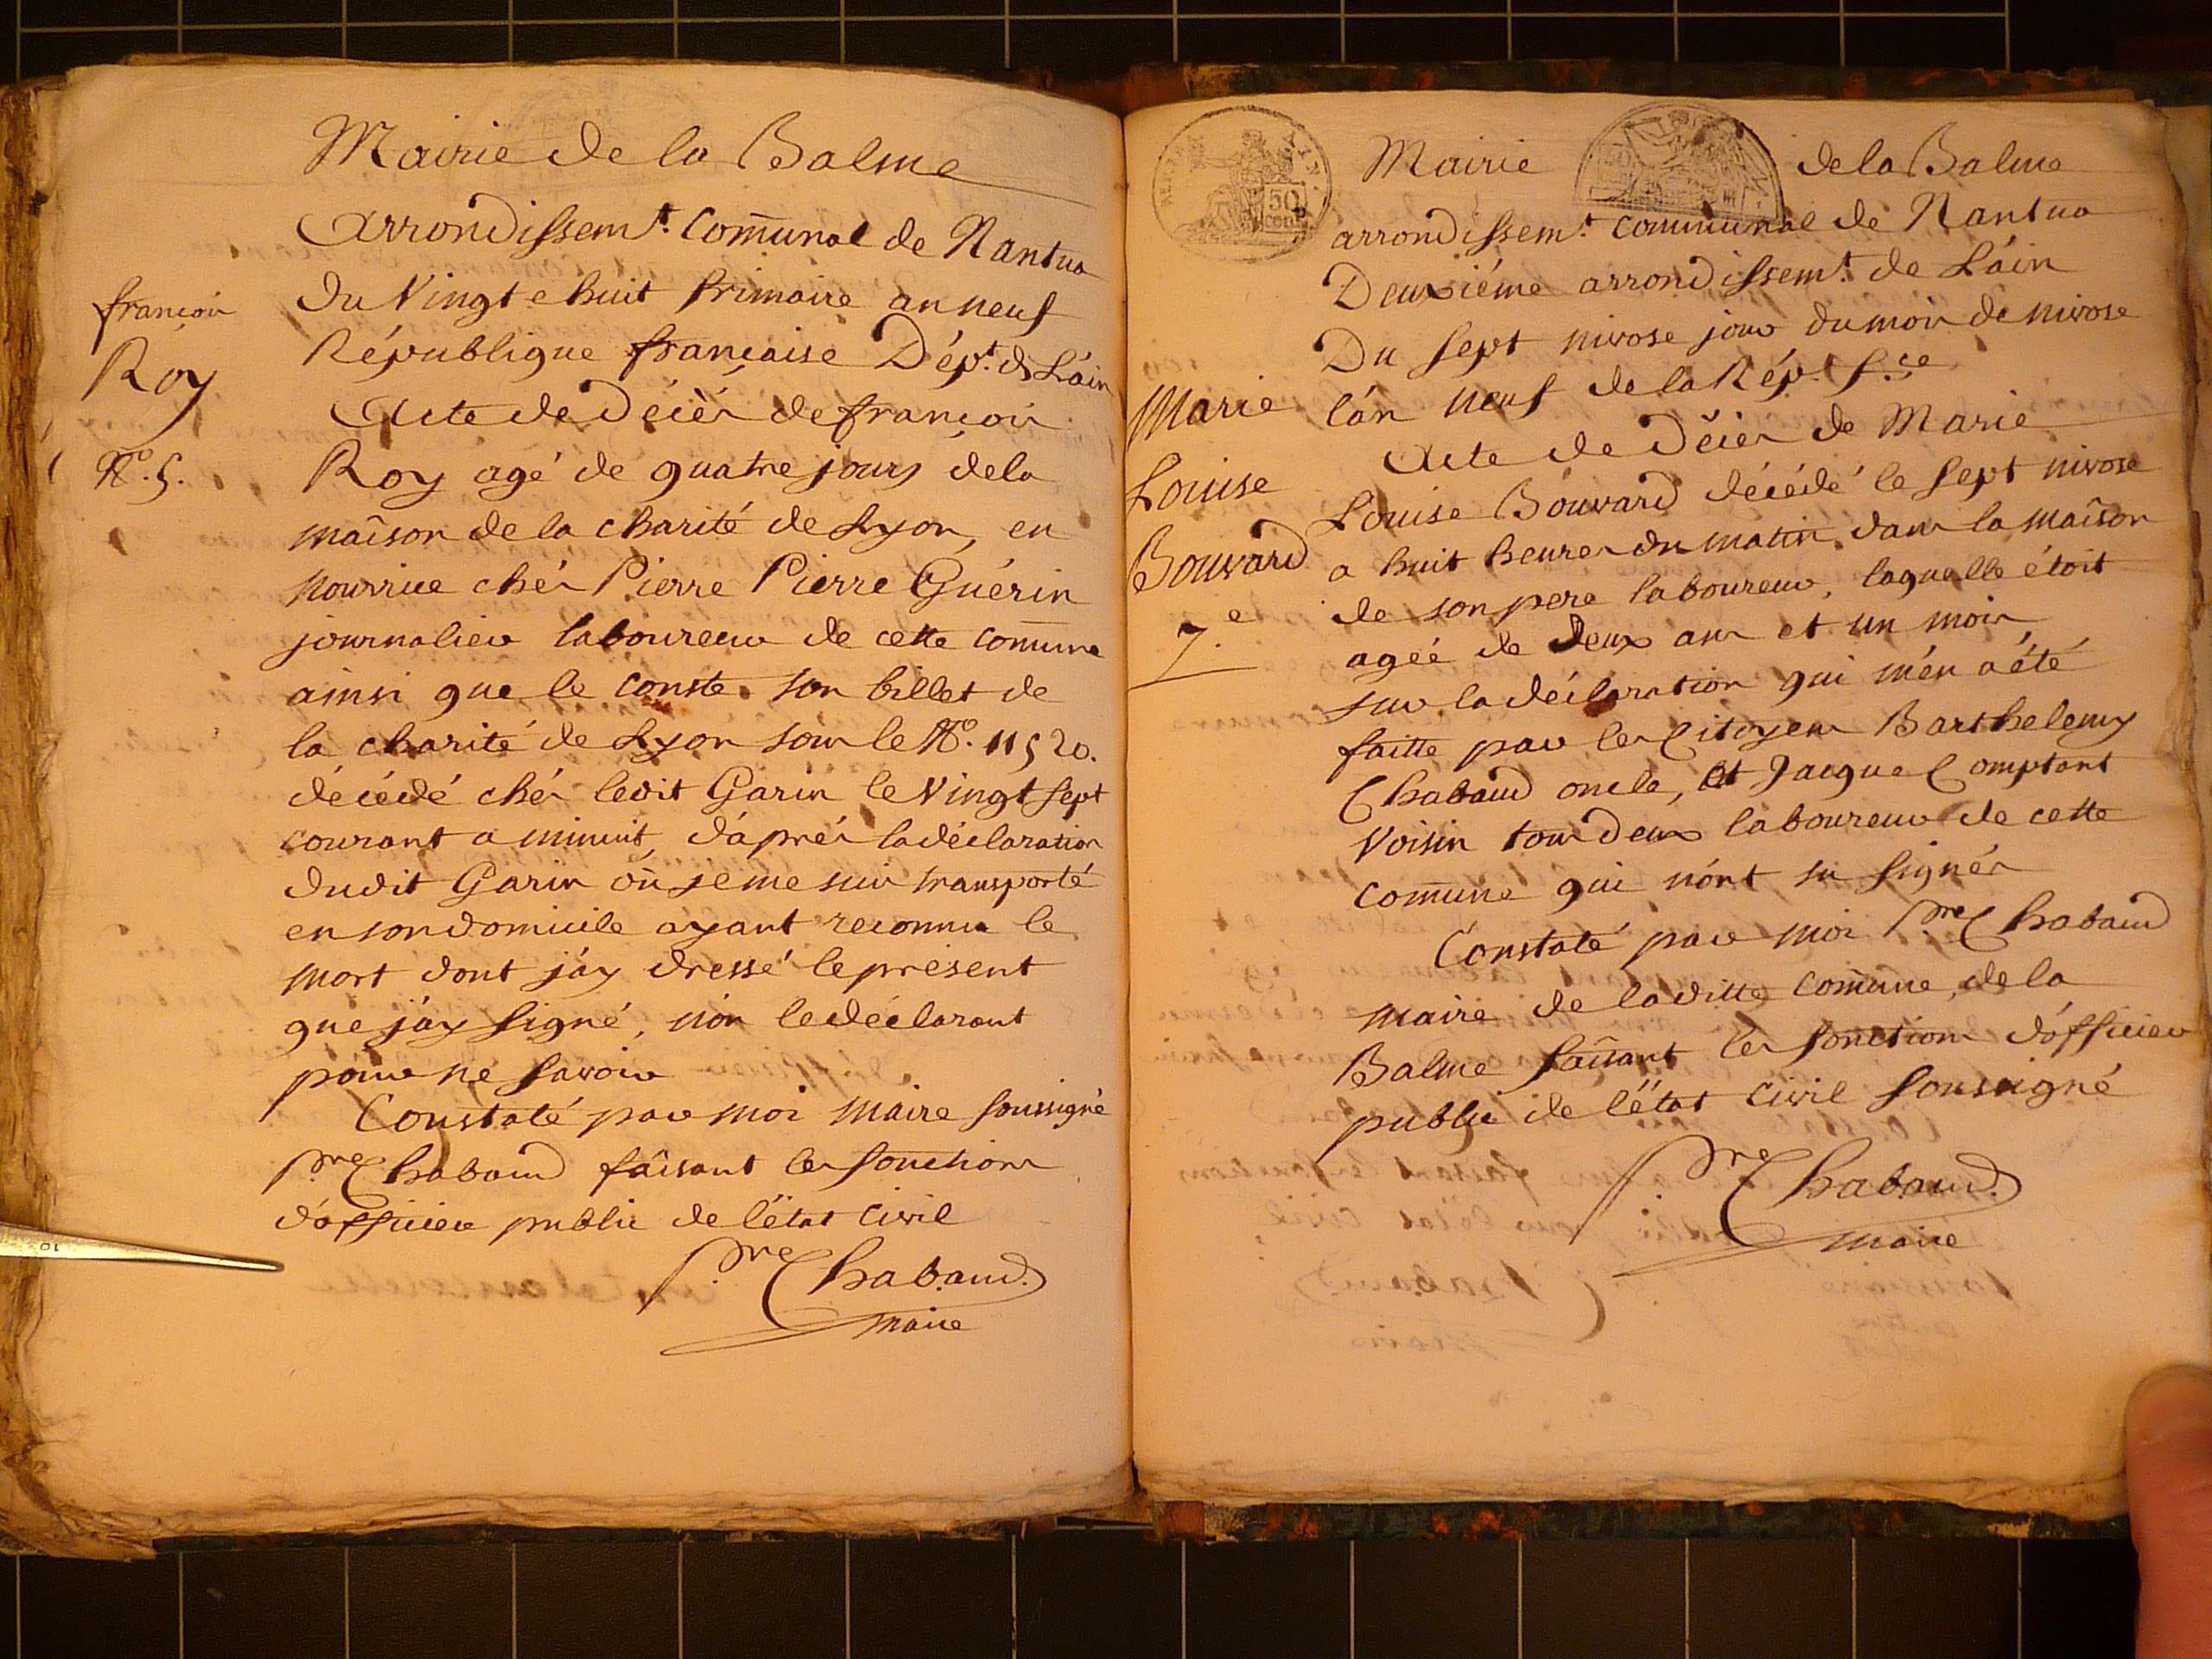 Mairie de la Balme
Arrondissem.t com̄unal de Nantua
du Vingt e huit frimaire an neuf
République française Dép.t de L'áin
françois
Roy
N.o 5.
Acte de Décès de françois
Roy agé de quatre jours de la
maîson de la charité de Lyon, en
nourrice chés Pierre Pierre Guérin
journalier laboureur de cette com̄une
ainsi que le conste son billet de
la charité de Lyon sous le N.o 11520.
décédé chés ledit Garin le Vingt sept
courant a minuit, d'áprés la déclaration
dudit Garin où je me suis transporté
en son domicile ayant reconnu le
mort dont j'áy dressé le présent
que j'áy signé, nón le déclarant
pour ne savoir
Constaté par moi maire soussigné
P.re Chabaud faîsant les fonctions
d'officier public de l'état civil
P.re Chabaud.
maire
AIN.
50
cent
Mairie de la Balme
arrondissem.t communal de Nantua
Deuxiéme arrondissem.t de L'áin
Du sept nivose jour du mois de nivose
l'án neuf de la Rép. f.se
Marie
Louise
Bouvard
7.e
Acte de Décès de Marie
Louise Bouvard décédé le sept nivose
a huit heures du matin dans la maîson
de son pere laboureur, laquelle étoit
agéé de deux ans et un mois
sur la déclaration qui m'én a été
faitte par les Citoyens Barthelemy
Chabaud oncle, et Jacque Comptant
Voisin tous deux laboureur de cette
com̄une qui n'ónt su signér
Constaté par moi P.re Chabaud
maire de laditte com̄une, de la
Balme faîsant les fonctions d'officier
public de l'état civil soussigné
P.re Chabaud.
maire